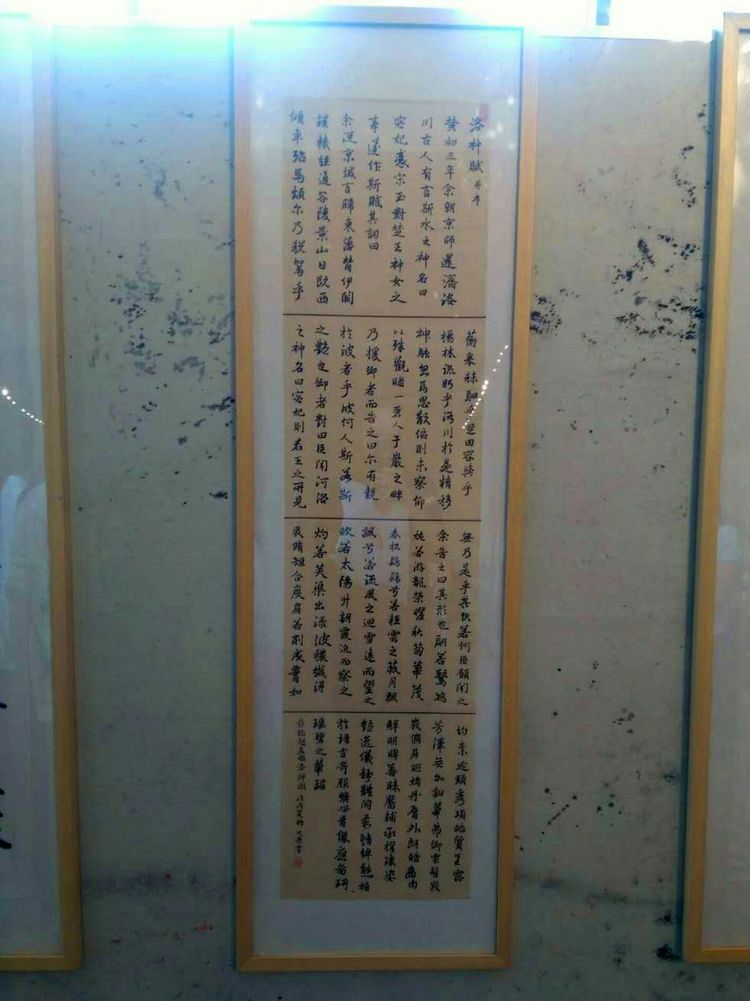 洛神賦 并序
黄初三年余朝京師還濟洛
川古人有言斯水之神名曰
宓妃感宋玉對楚王神女之
事遂作斯賦其詞曰
余從京域言歸東藩背伊闕
轘轅經通谷陵景山日既西
傾車殆馬煩尔乃稅駕乎
蘅皋秣駟乎芝田容與乎
楊林流眄乎洛川於是精移
神駭忽焉思散俯則未察仰
以殊觀睹一麗人于巖之畔
乃援御者而告之曰尔有覿
於彼者乎彼何人斯若斯
之艷也御者對曰臣聞河洛
之神名曰宓妃則君王之所見
無乃是乎其狀若何臣願聞之
余告之曰其形也翩若驚鴻
婉若游龍榮曜秋菊華茂
春松髣髴兮若輕雲之蔽月飄
飖兮若流風之迴雪遠而望之
皎若太陽升朝霞迫而察之
灼若芙蕖出渌波穠纖得
衷脩短合度肩若削成腰如
約素延頸秀項皓質呈露
芳澤無加鉛華弗御雲髻峩
峩脩眉聯娟丹唇外朗皓齒内
鮮明眸善睞靨輔承權瓌姿
艷逸儀靜體閑柔情綽態媚
於語言奇服曠世骨像應啚珥
瑤碧之華琚
節臨趙孟頫洛神賦 戊戌夏時